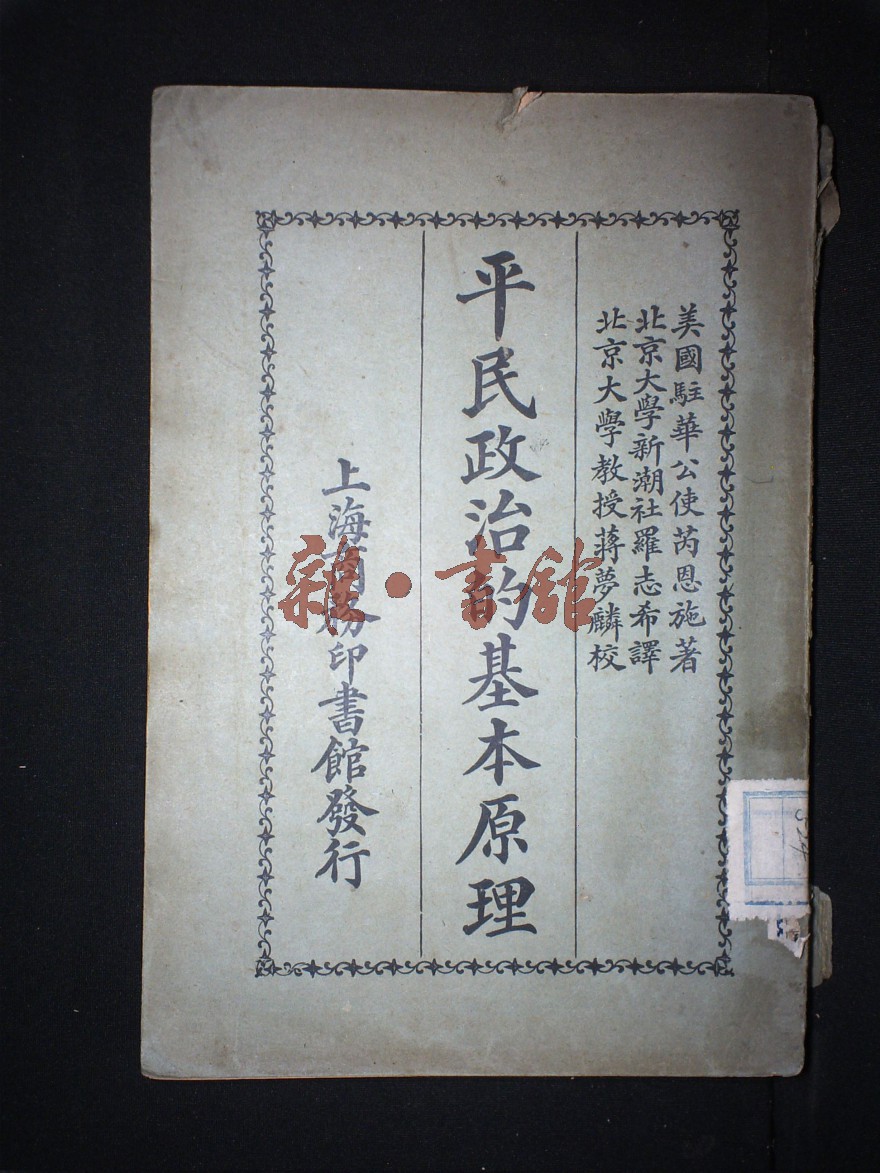 美國駐華公使芮恩施著
北京大學新潮社羅志希譯
北京大學教授蔣夢麟校
平民政治的基本原理
上海商務印書館發行
雜·書館